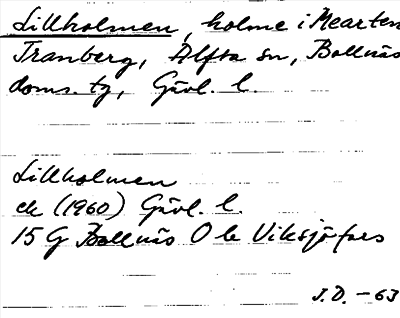 Lillholmen, holme i Mearten
Tranberg, Alfta sn, Bollnäs
doms. tg, Gävl. l.
Lillholmen
ek (1960) Gävl. l.
15 G Bollnäs O le Viksjöfors
J.D. - 63